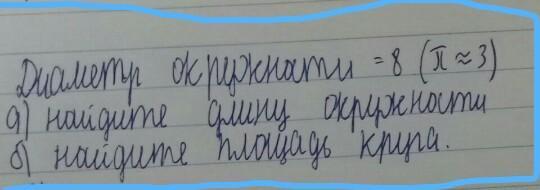 Диаметр окружности = 8 (π ≈ 3)
а) найдите длину окружности
б) найдите площадь круга.